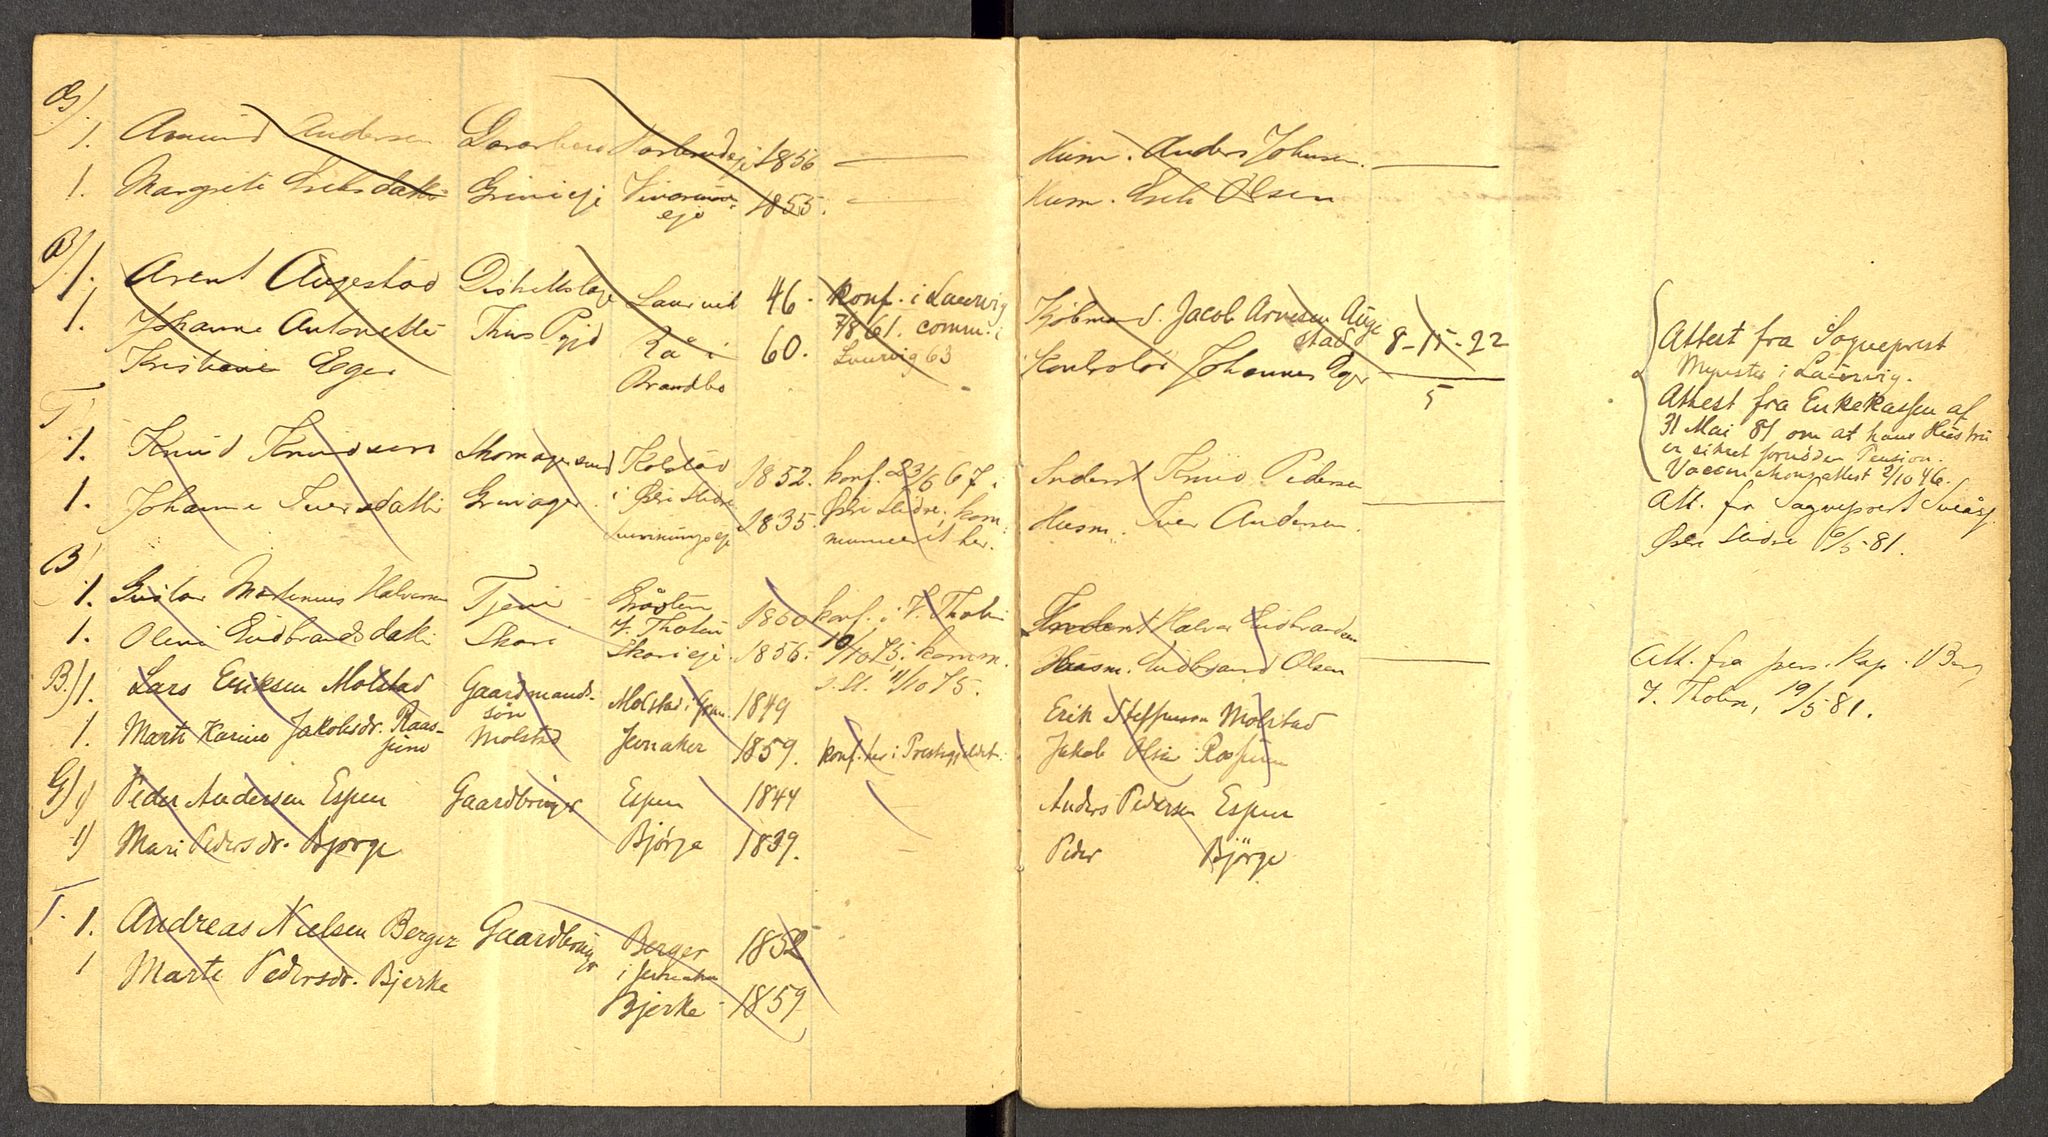 G).
1. Amund Andersen 1856 —
1. Margrete Eriksdatter Grinieje 1855. —
B)
1. Arent Augestad Distriktslæge Laurvik 46. konf. i Laurvig
1. Johanne Antonette Thus Pgjd Raa i 60. 7/8 61. comm. i
Kristiane Eger Brandbo Laurvig 63
T
1. Knud Knudsen Kolstad 1852. konf. 23/6 67 i
i Østre Slidre Østre Slidre, kom
1. Johanne Iversdatter Granager 1835 municeret her.
B)
1. Gustav Martinius Halvorsen Tjener 1850 konf. i V. Thoten
V. Thoten 10/10 75. komm.
1. Olene Gudbrandsdatter Skari Skarieje 1856. s. St. 11/10 75.
B.) 1. Lars Eriksen Molstad Gaardmands- Molstad i Gran 1849
søn
1. Marte Karine Jakobsdr. Raas- Molstad Jevnaker 1859. konf. her i Præstegjeldet.
sum
G) 1) Peder Andersen Espen Gaardbruger Espen 1844
1) Mari Pedersdr. Bjørge Bjørge 1839. —
T. 1. Andreas Nielsen Berger Gaardbruger Berger 1852
i Jevnaker
1 Marte Pedersdr. Bjerke Bjerke 1859
Husm. Anders Johnsen. —
Husm. Erik Olsen
Kjøbmand. Jacob Arvesen Auge
stad 8-15-22
Kontrolør Johannes Eger 5
Inderst Knud Pedersen
Husm. Iver Andersen. —
Inderst Halvor Gudbrandsen
Husm. Gudbrand Olsen —
Erik Steffensen Molstad
Jakob Olsen Raassum
Anders Pedersen Espen
Peder Bjørge
Attest fra Sogneprest
Mynster i Laurvig.
Attest fra Enkekassen af
31 Mai 81 om at hans Hustru
er sikret fornøden Pension.
Vaccinationsattest 2/10 46.
Att. fra Sogneprest
Østre Slidre 6/5 81.
Att. fra pers. Kap. Berg
V. Thoten, 19/5 81.